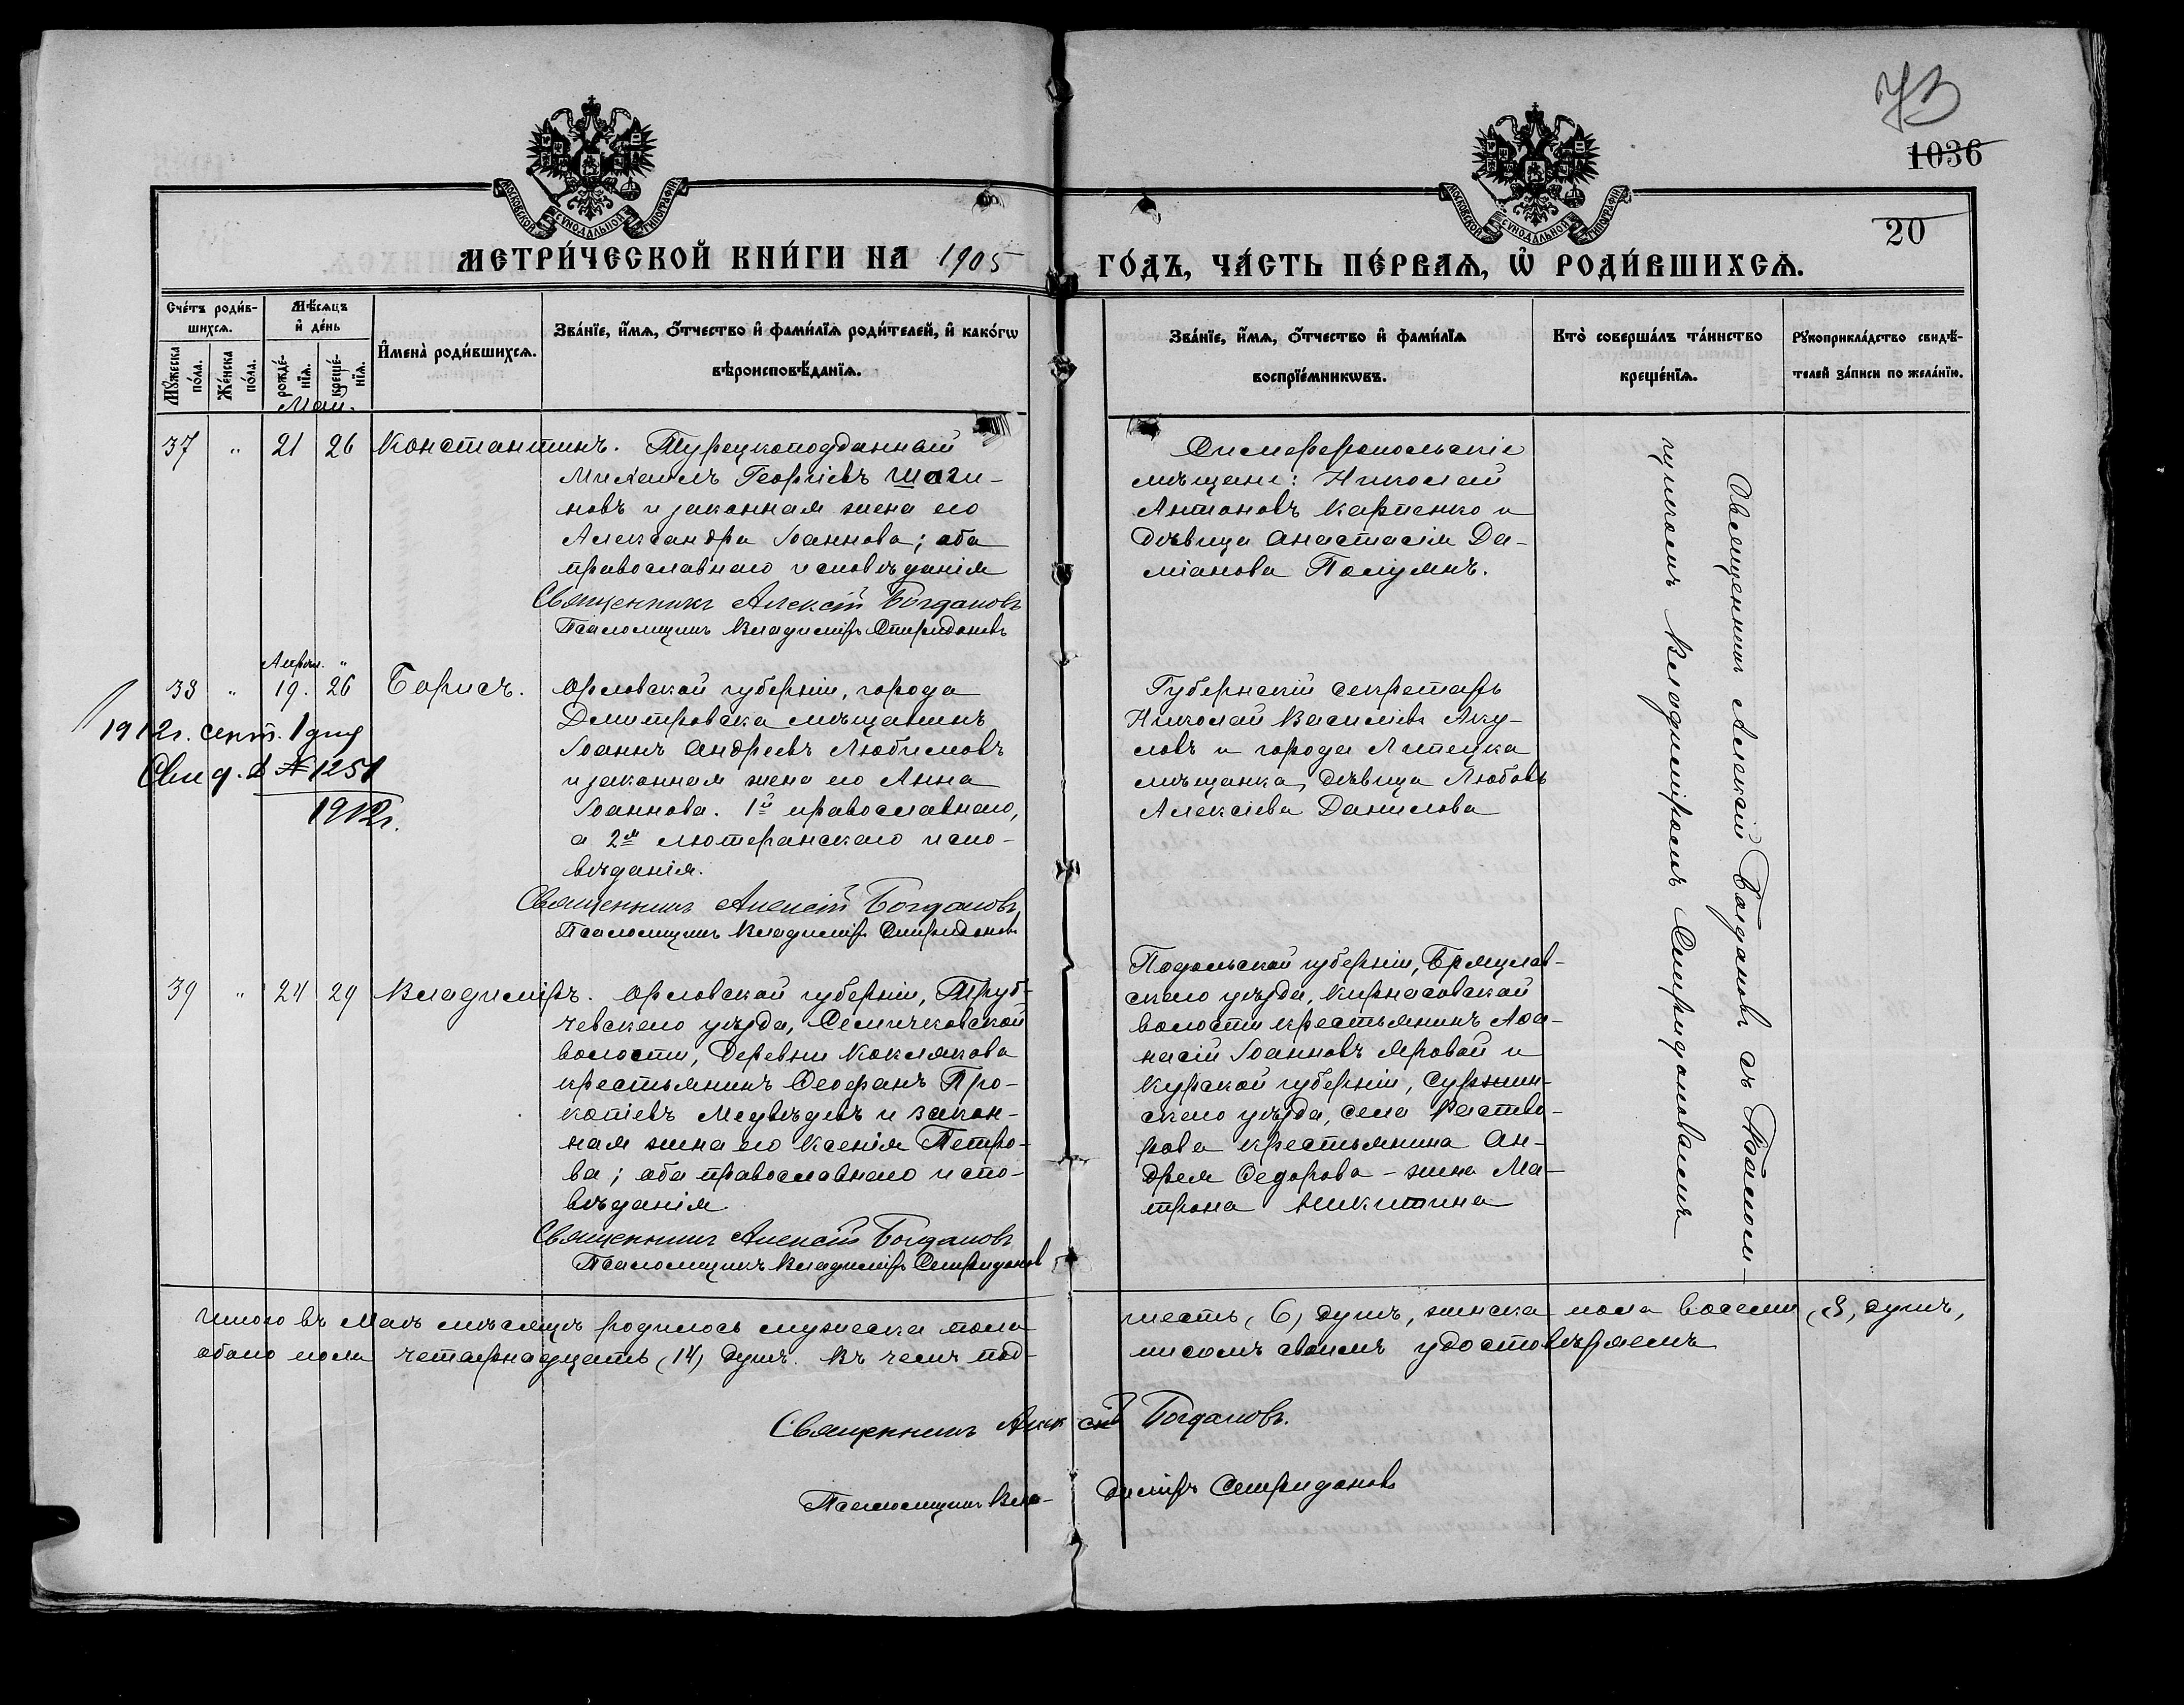 73
1036
20
МОСКОВСКОЙ СѴНОДАЛЬНОЙ ТИПОГРАФІИ
МОСКОВСКОЙ СѴНОДАЛЬНОЙ ТИПОГРАФІИ
МЕТРИ́ЧЕСКОЙ КНИ́ГИ НА 1905 ГО́ДЪ, ЧА́СТЬ ПЕ́РВАѦ, Ѡ҆ РОДИ́ВШИХСѦ.
Сче́тъ роди́в-
шихсѧ.
Мꙋ́жеска по́ла.
Же́нска по́ла.
Мѣ́сѧцъ
и҆ де́нь
рожде́-
нїѧ.
креще́-
нїѧ.
И҆мена̀ роди́вшихсѧ.
Зва́нїе, и҆́мѧ, ѻ҆́тчество и҆ фами́лїѧ роди́телей, и҆ како́гѡ
вѣроисповѣ́данїѧ.
Зва́нїе, и҆́мѧ, ѻ҆́тчество и҆ фами́лїѧ
воспрїе́мникѡвъ.
Кто̀ соверша́лъ та́инство
креще́нїѧ.
Рꙋкоприкла́дство свидѣ́-
телей за́писи по жела́нїю.
Май.
37 " 21 26 Константинъ.
Турецкоподданный
Михаилъ Георгіевъ Шаги-
новъ и законная жена его
Александра Іоаннова; оба
православнаго исповѣданія
Священникъ Алексій Богдановъ
Псаломщикъ Владиміръ Спиридоновъ
Симферопольскіе
мѣщане: Николай
Антоновъ Карпенко и
дѣвица Анастасія Да-
міанова
Апрѣл. "
38 " 19. 26 Борисъ.
1912г. сент. 1 дня
Свид. № 1251
1912г.
Орловской губерніи, города
Дмитровска мѣщанинъ
Іоаннъ Андреевъ Любимовъ
и законная жена его Анна
Іоаннова. 1й православнаго,
а 2я лютеранскаго испо-
вѣданія.
Священникъ Алексій Богдановъ,
Псаломщикъ Владиміръ Спиридоновъ
Губернскій секретарь
Николай Васильевъ Аку-
ловъ и города Липецка
мѣщанка, дѣвица Любовь
Алексіева Данилова
39 " 24 29 Владиміръ.
Орловской губерніи, Труб-
чевскаго уѣзда, Семячковской
волости, деревни Коклякова
крестьянинъ Ѳеофанъ Про-
копіевъ Медвѣдевъ и закон-
ная жена его Ксенія Петро-
ва; оба православнаго испо-
вѣданія
Священникъ Алексій Богдановъ
Псаломщикъ Владиміръ Спиридонов
Подольской губерніи, Брацлав-
скаго уѣзда, Кирнасовской
волости крестьянинъ Аѳа-
насій Іоанновъ Яровой и
Курской губерніи, Суджан-
скаго уѣзда, села Раство-
рова крестьянина Ан-
дрея Ѳедорова – жена Ма-
трона Никитина
Священникъ Алексій Богдановъ съ Псалом-
щикомъ Владиміромъ Спиридоновымъ
Итого въ Маѣ мѣсяцѣ родилось мужеска пола шесть (6) душъ, женска пола восемь (8) душъ,
обоего пола четырнадцать (14) душъ. Въ чемъ под-
писомъ своимъ удостовѣряемъ
Священникъ Алексій Богдановъ.
Псаломщикъ Вла- диміръ Спиридоновъ